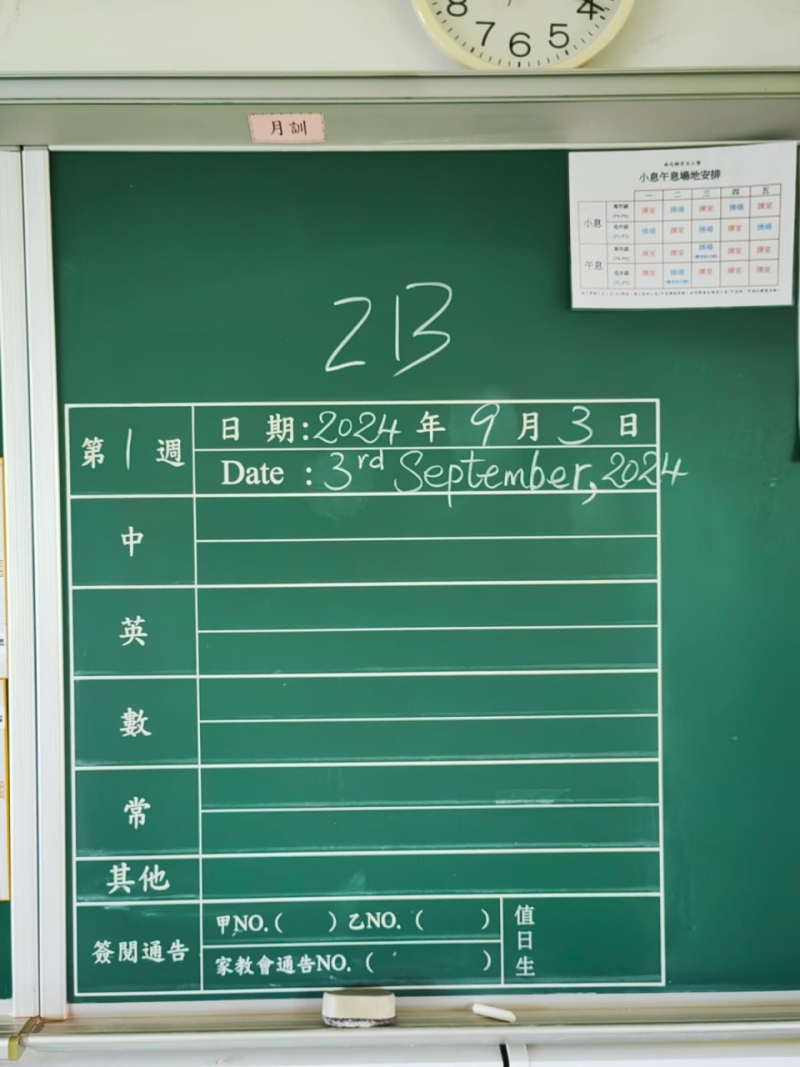 8 7 6 5 4
月訓
小息午息場地安排
一 二 三 四 五
小息 課室 操場 課室 操場 課室
操場 課室 操場 課室 操場
午息 課室 課室 操場 課室 課室
課室 操場 課室 課室 課室
2B
第1週 日期:2024年9月3日
Date : 3rd September, 2024
中
英
數
常
其他
簽閱通告 甲NO.( ) 乙NO.( ) 值日生
家教會通告NO.( )